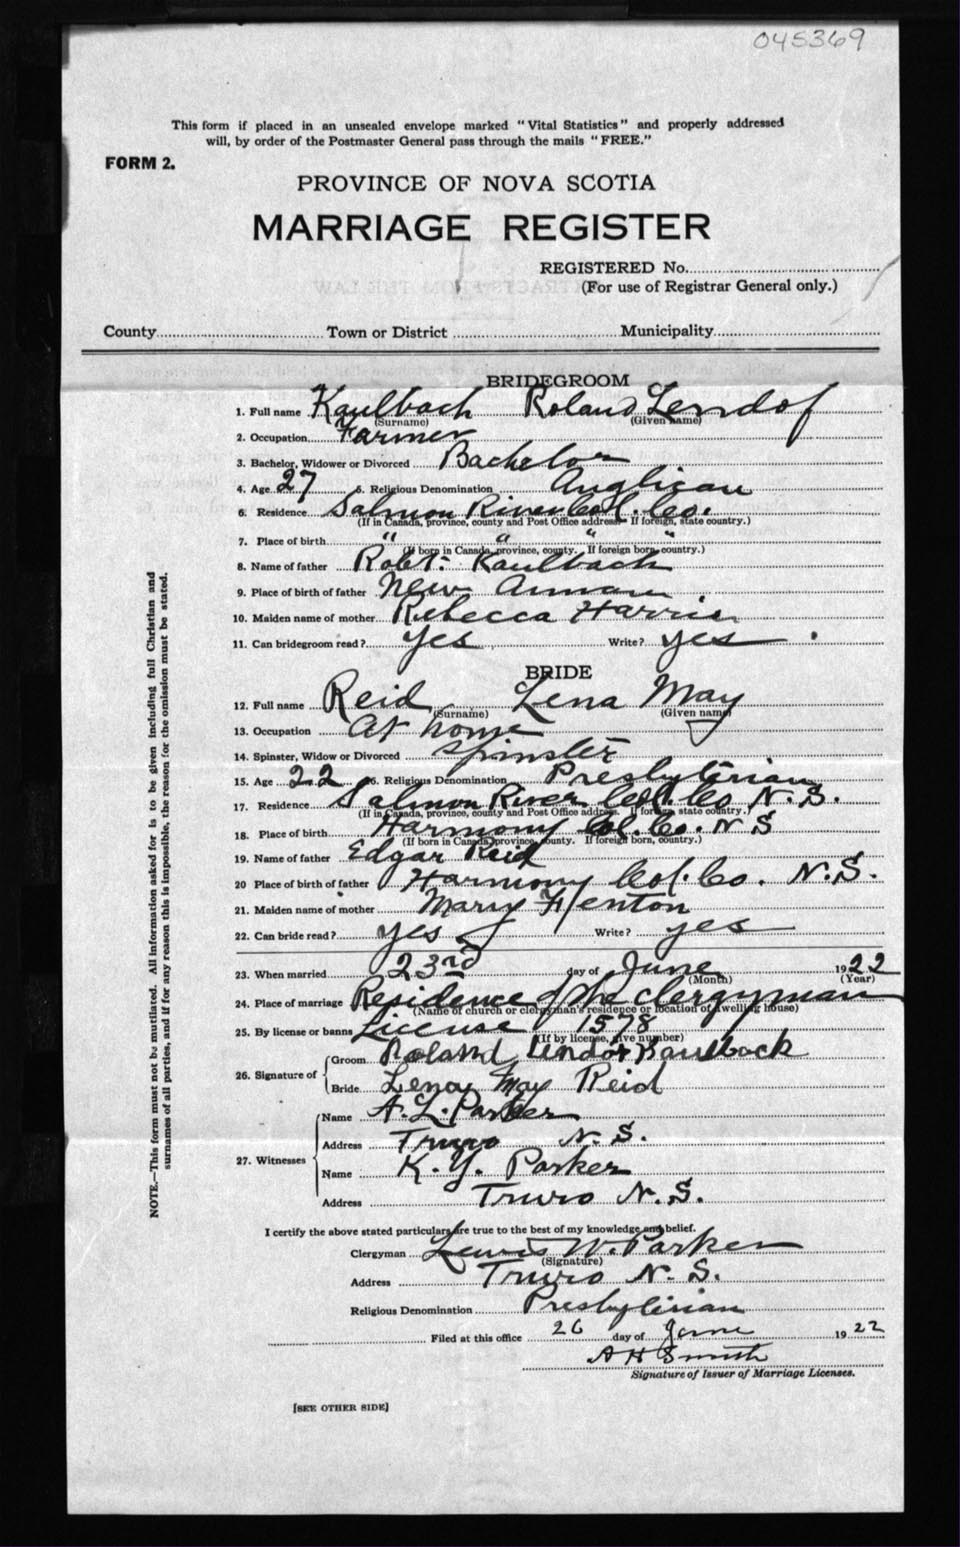 045369
This form if placed in an unsealed envelope marked "Vital Statistics" and properly addressed
will, by order of the Postmaster General pass through the mails "FREE."
FORM 2.
PROVINCE OF NOVA SCOTIA
MARRIAGE REGISTER
REGISTERED No.
(For use of Registrar General only.)
County Town or District Municipality
BRIDEGROOM
1. Full name Kaulbach Roland Lendof
(Surname) (Given name)
2. Occupation Farmer
3. Bachelor, Widower or Divorced Bachelor
4. Age 27 5. Religious Denomination Anglican
6. Residence Salmon River Col. Co.
(If in Canada, province, county and Post Office address. If foreign, state country.)
7. Place of birth " " " "
(If born in Canada, province, county. If foreign born, country.)
8. Name of father Robt. Kaulback
9. Place of birth of father New Annan
10. Maiden name of mother Rebecca Harris
11. Can bridegroom read? yes Write? yes
BRIDE
12. Full name Reid Lena May
(Surname) (Given name)
13. Occupation At home
14. Spinster, Widow or Divorced Spinster
15. Age 22 16. Religious Denomination Presbyterian
17. Residence Salmon River Col. Co N.S.
(If in Canada, province, county and Post Office address. If foreign, state country.)
18. Place of birth Harmony Col. Co. N S
(If born in Canada, province, county. If foreign born, country.)
19. Name of father Edgar Reid
20 Place of birth of father Harmony Col. Co. N.S.
21. Maiden name of mother Mary Flenton
22. Can bride read? yes Write? yes
23. When married 23rd day of June 1922
(Month) (Year)
24. Place of marriage Residence of the clergyman
(Name of church or clergyman's residence or location of dwelling house)
25. By license or banns License 1578
(If by license, give number)
26. Signature of
Groom Roland Lendof Kaulback
Bride Lena May Reid
27. Witnesses
Name A. L. Parker
Address Truro N. S.
Name K. Y. Parker
Address Truro N. S.
I certify the above stated particulars are true to the best of my knowledge and belief.
Clergyman Lewis W. Parker
(Signature)
Address Truro N. S.
Religious Denomination Presbyterian
Filed at this office 26 day of June 1922
A H Smith
Signature of Issuer of Marriage Licenses.
[SEE OTHER SIDE]
NOTE.—This form must not be mutilated. All information asked for is to be given including full Christian and
surnames of all parties, and if for any reason this is impossible, the reason for the omission must be stated.